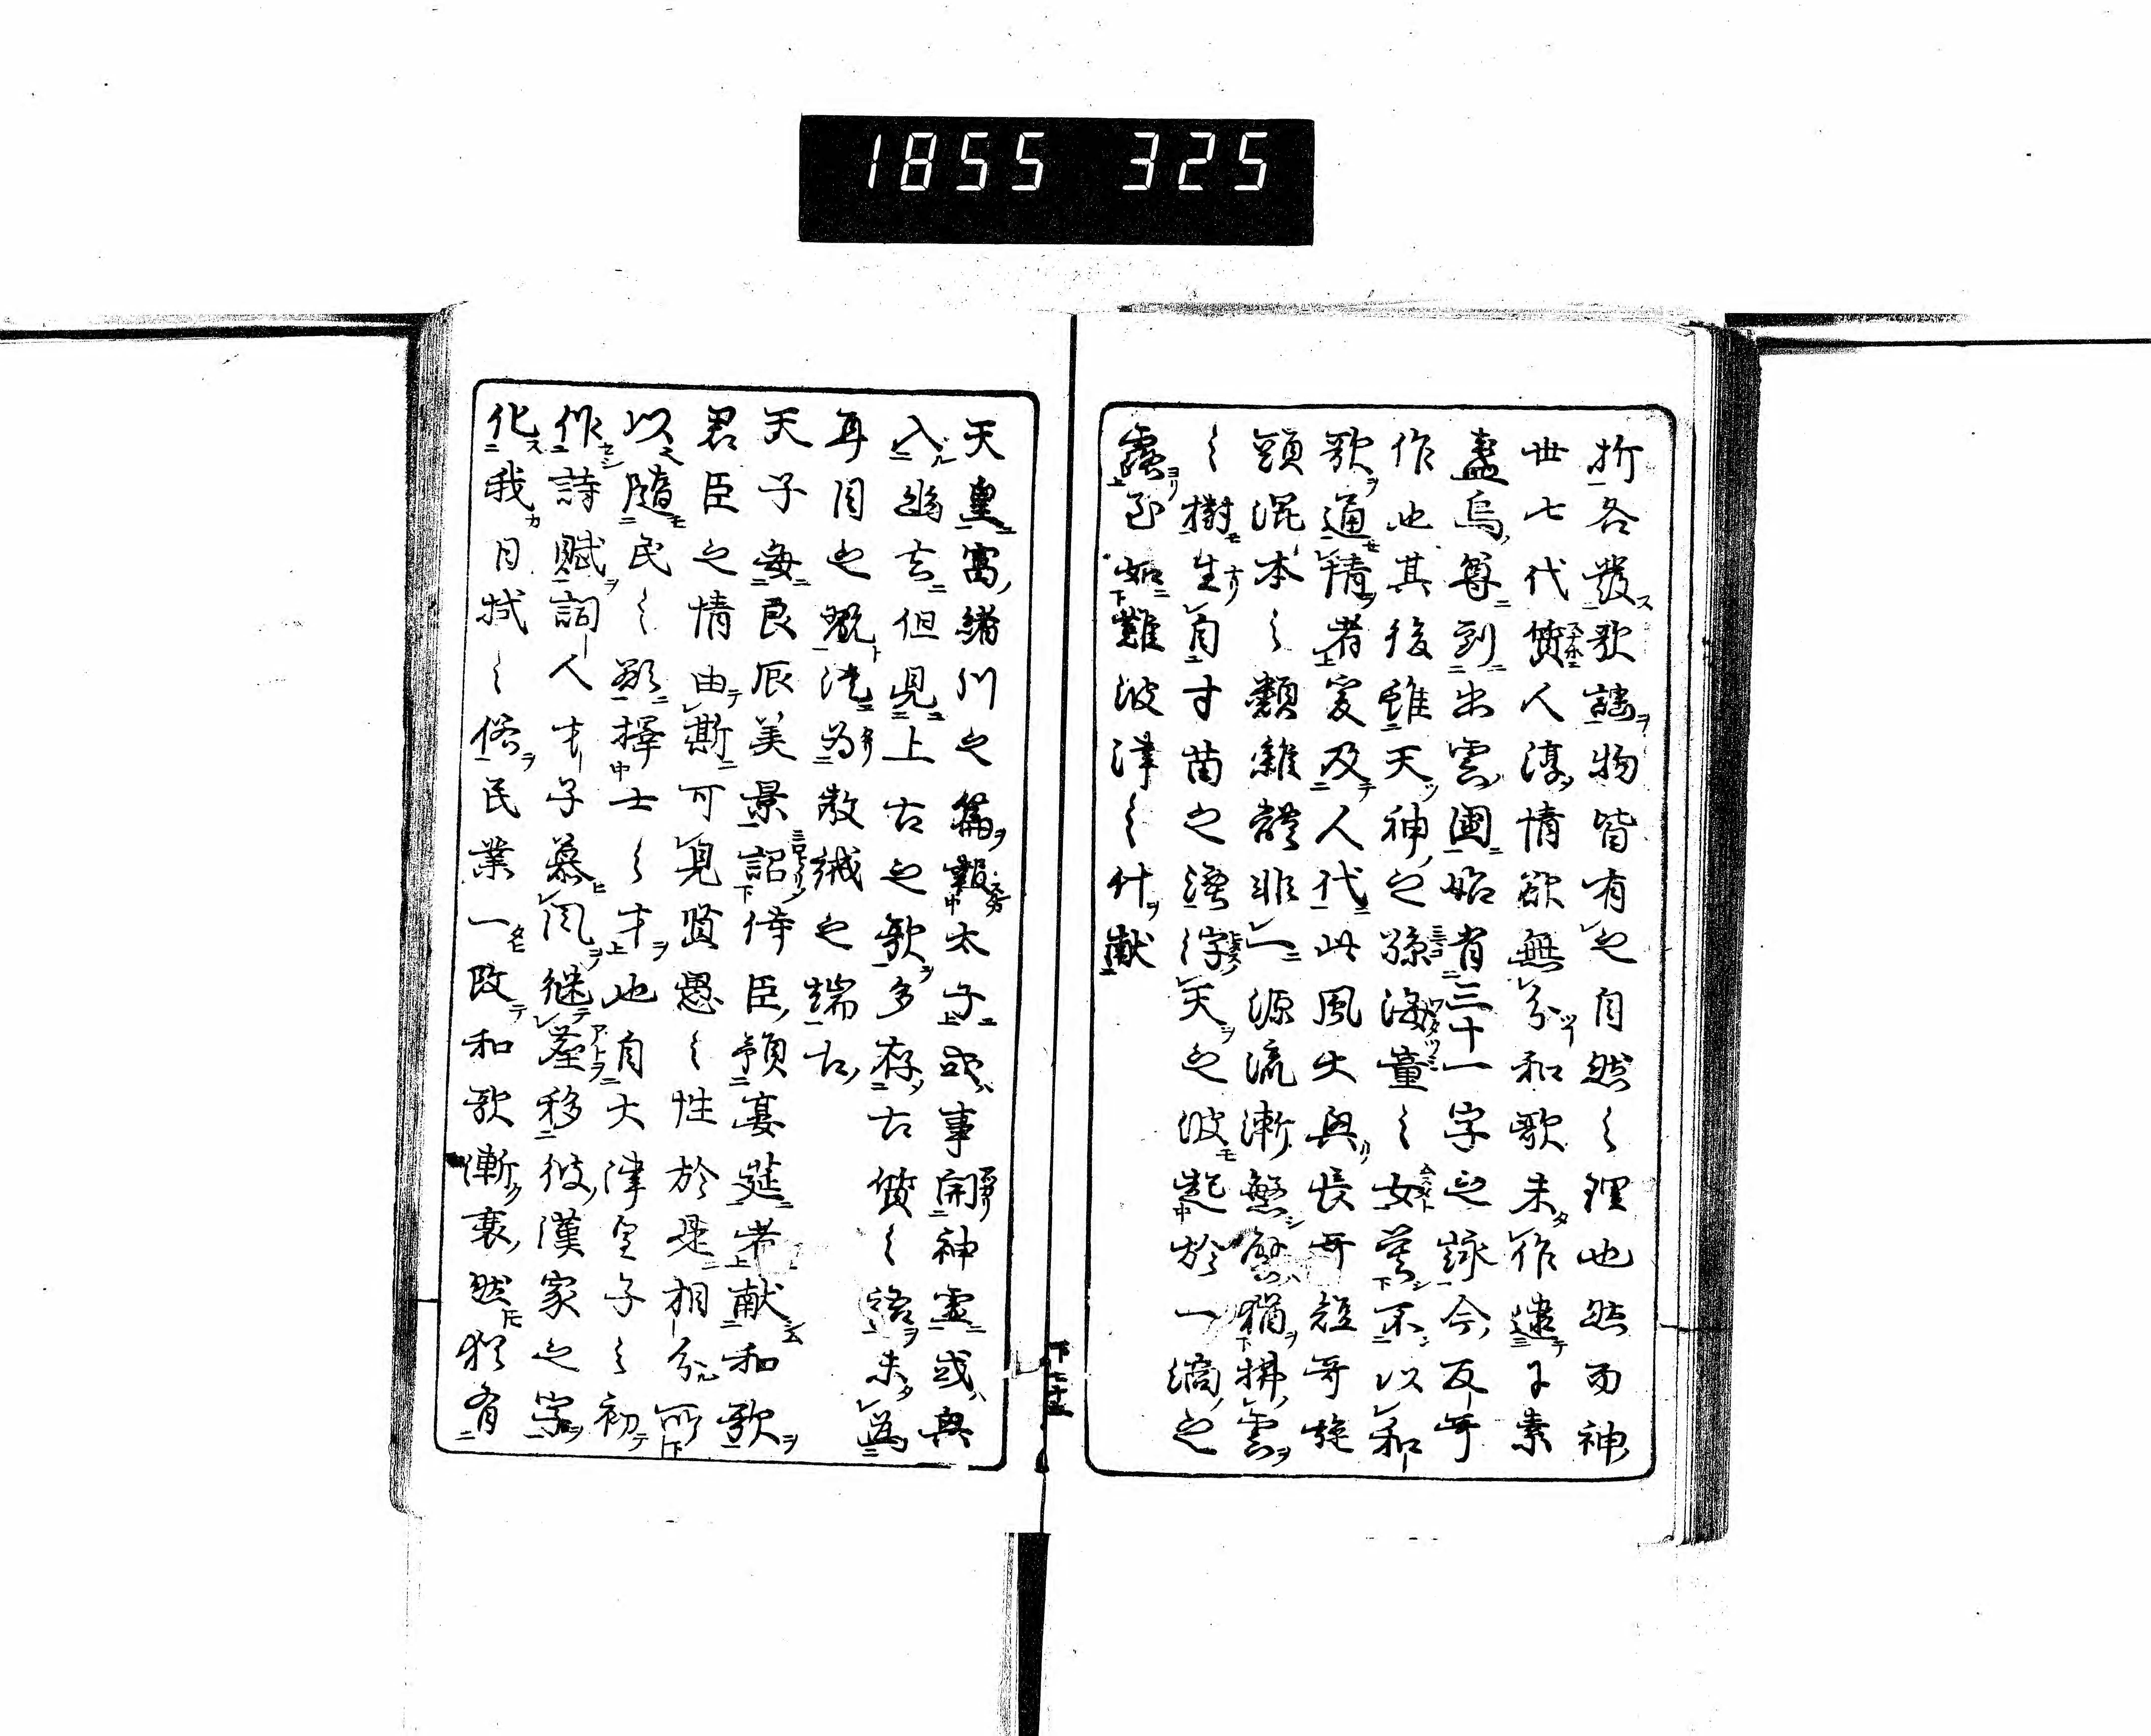 1855 325
折各發歌謡物皆有之自然之理也然而神
世七代質人淳情欲無分和歌未作逮于素
盞烏尊到出雲國始有三十一字之詠今反哥
作也其後雖天神之孫海童之女莫不以和
歌通情者爰及人代此風大興長哥短哥旋
頭混本之類雜體非一源流漸繁譬猶拂雲
之樹生自寸苗之浮天之波起於一滴之
露至如難波津之什献
天皇富緒川之篇報太子或事關神靈或興
入幽玄但見上古之歌多存古質之語未為
耳目之翫徒為教誡之端古
天子毎良辰美景詔侍臣預宴莚者献和歌
君臣之情由斯可見賢愚之性於是相分所
以隨民之欲擇士之才也自大津皇子之初
作詩賦詞人才子慕風繼塵移彼漢家之字
化我日域之俗民業一改和歌漸衰然猶有
下七十五